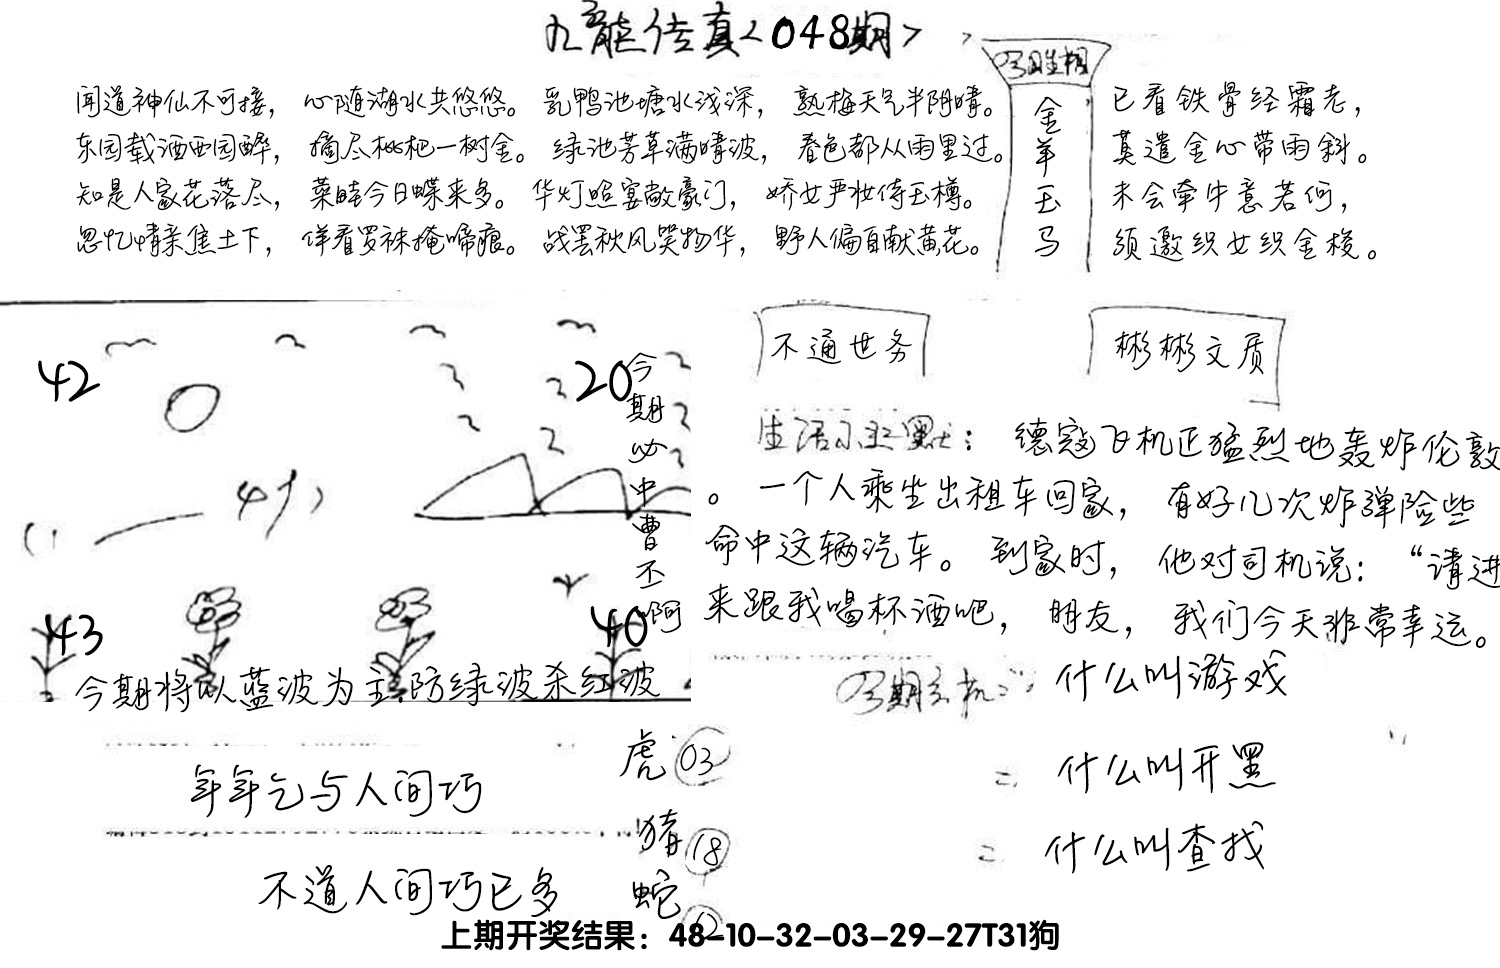 九龙传真<048期>
闻道神仙不可接，心随湖水共悠悠。乳鸭池塘水浅深，熟梅天气半阴晴。
东园载酒西园醉，摘尽枇杷一树金。绿池芳草满晴波，春色都从雨里过。
知是人家花落尽，菜畦今日蝶来多。华灯照宴敞豪门，娇女严妆侍玉樽。
忽忆情亲焦土下，佯看罗袜掩啼痕。战罢秋风笑物华，野人偏自献黄花。
金羊玉马
已看铁骨经霜老，
莫遣金心带雨斜。
未会牵牛意若何，
须邀织女织金梭。
42
20
43
40
今期必中曹丕啊
今期将以蓝波为主防绿波杀红波
不通世务
彬彬文质
德寇飞机正猛烈地轰炸伦敦
。一个人乘坐出租车回家，有好几次炸弹险些
命中这辆汽车。到家时，他对司机说：“请进
来跟我喝杯酒吧，朋友，我们今天非常幸运。
什么叫游戏
什么叫开黑
什么叫查找
年年乞与人间巧
不道人间巧已多
虎 03
猪 18
蛇
上期开奖结果：48-10-32-03-29-27T31狗